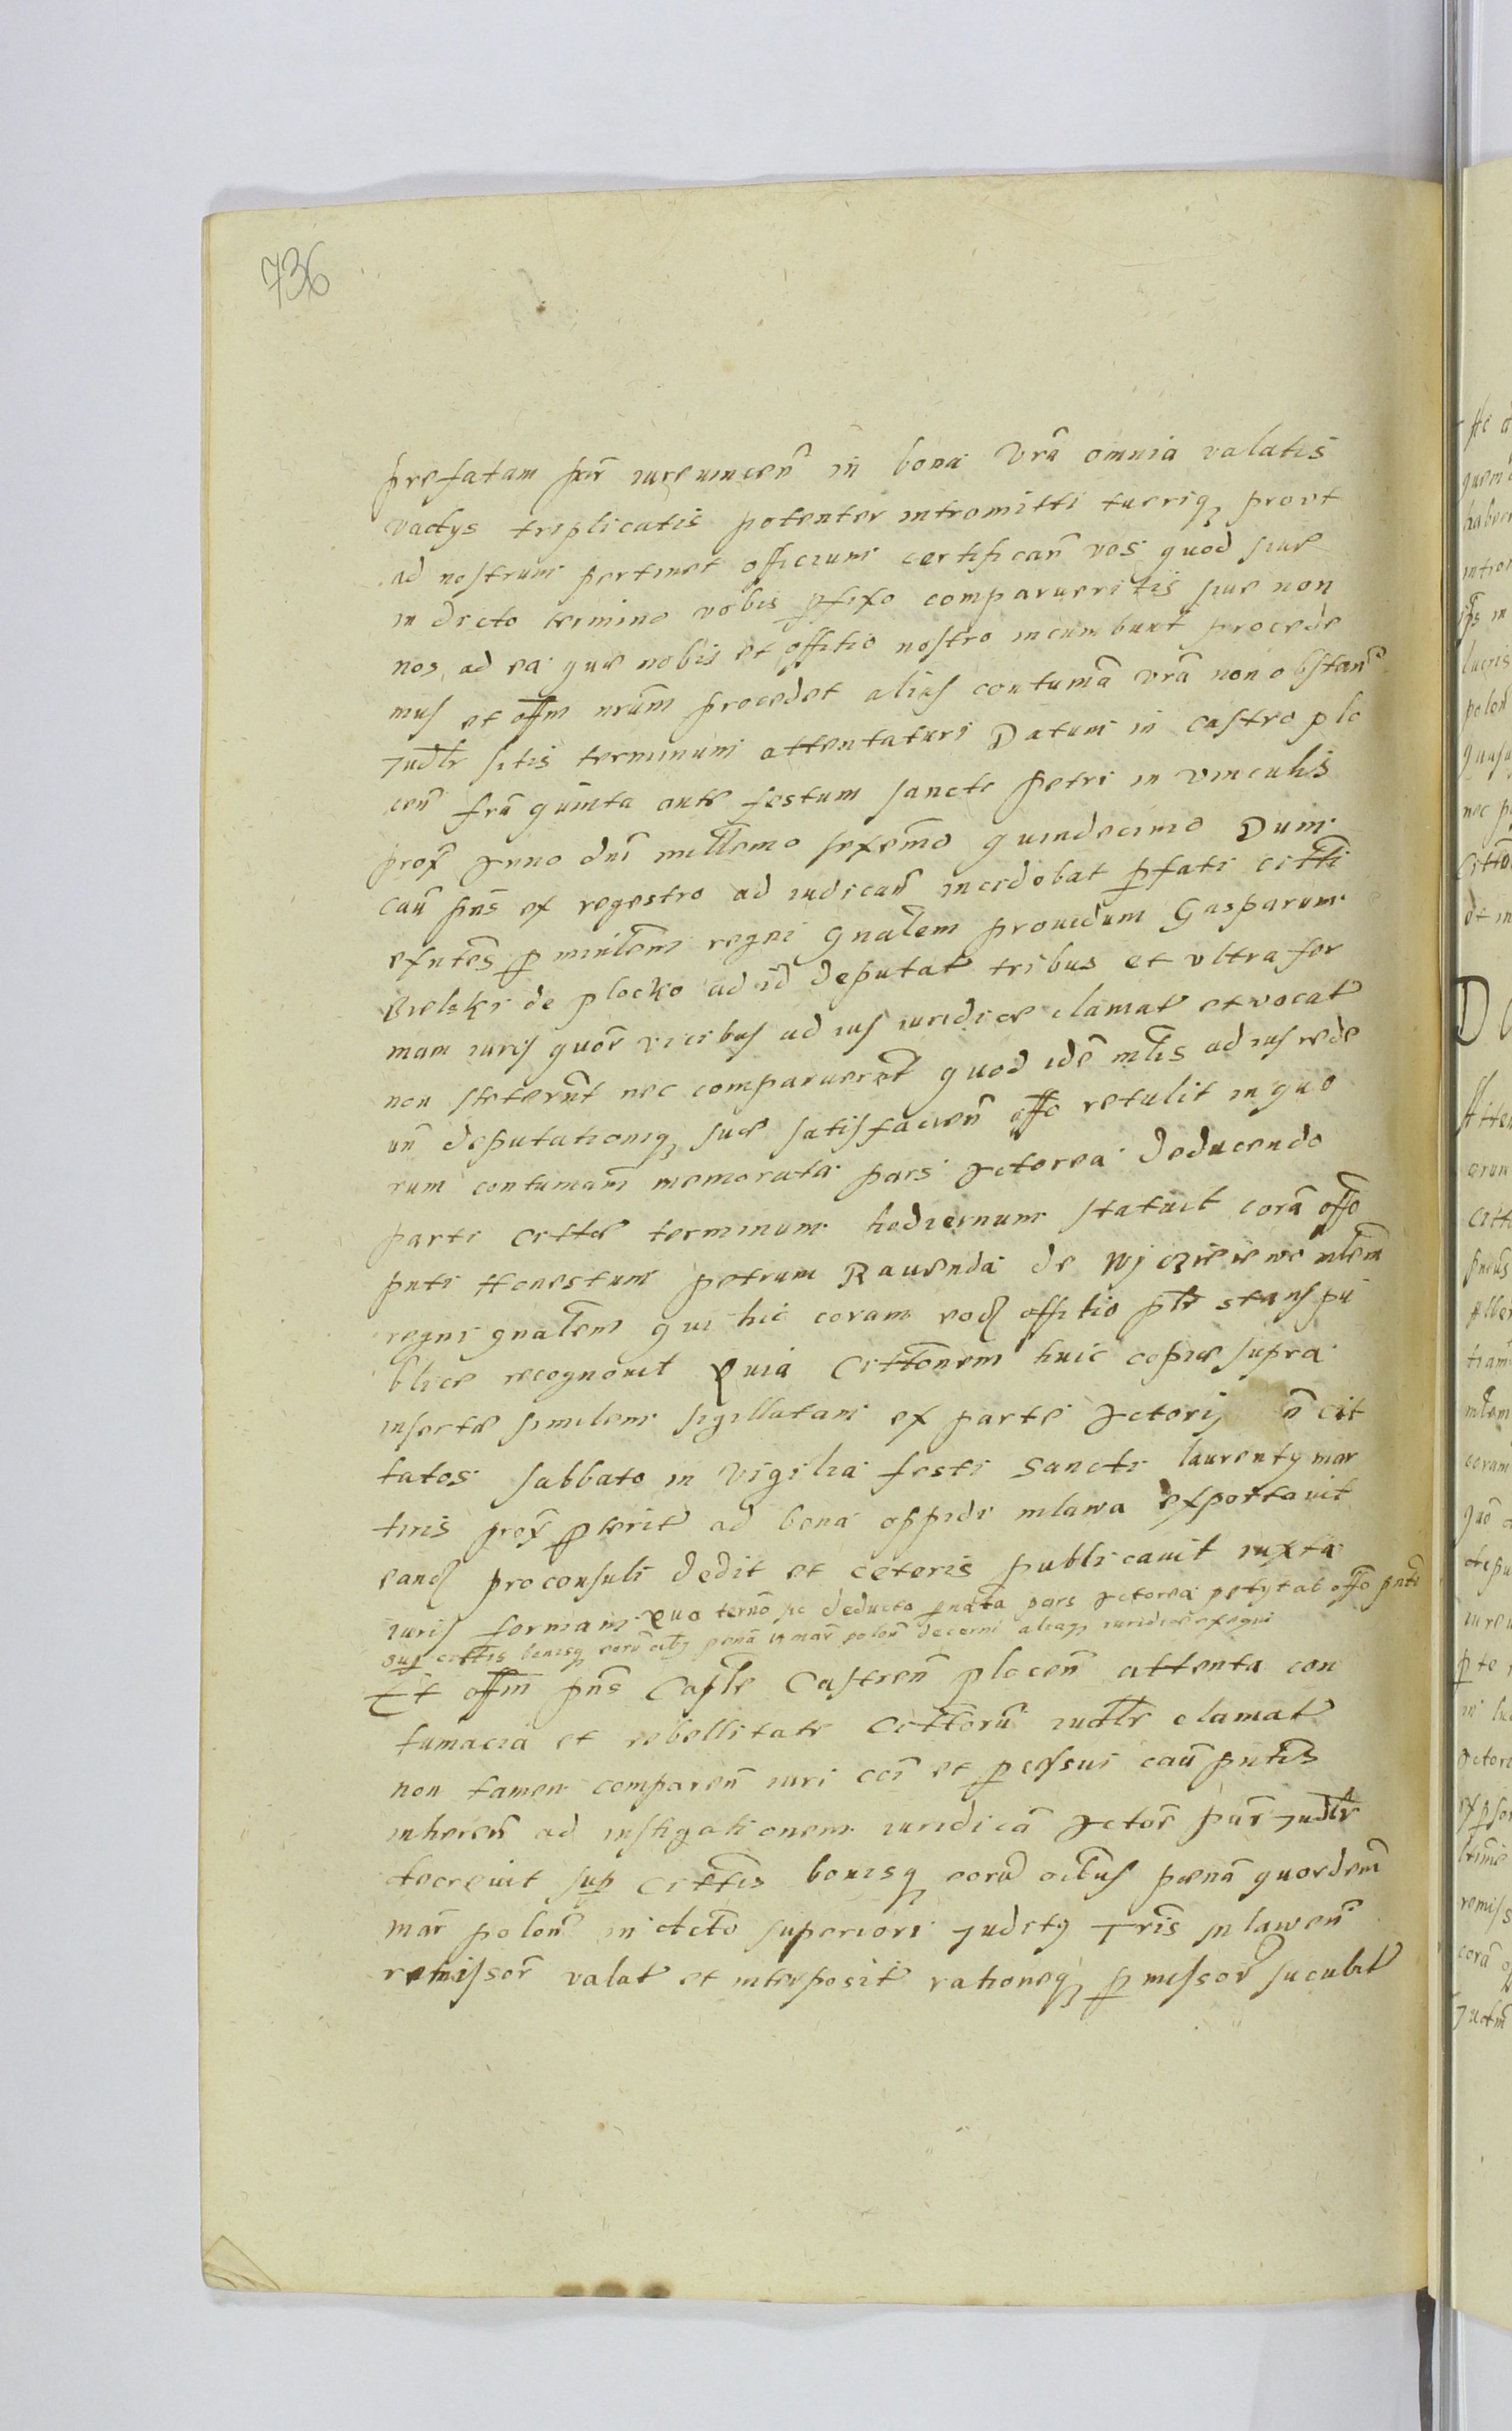 736
prefatam par iurevincen in bona vra omnia valatis
vadys triplicatis potenter intromitti tueriq prout
ad nostrum pertinet officium certifican vos quod siue
in dicto termino vobis pfixo comparueritis siue non
nos ad ea que nobis et offitio nostro incumbunt procede
mus et offm nrum procedet alias contuma vra non obstan
Judlr sitis terminum attentaturi Datum in castro plo
cen fra quinta ante festum sancti Petri in vinculis
prox Anno dni millemo sexcmo quindecimo Dum
cau pns ex regestro ad iudican incidebat pfati citti
exntes p minlem regni gnalem prouidum Gasparum
Bielski de plocko ad id deputat tribus et vltra for
mam iuris quor vicibus ad ius iuridice clamat et vocat
non steterunt nec comparuerut quod ide mlis ad ius rede
un deputationiq sue satisfacien offo retulit in quo
rum contumam memorata pars Actorea deducendo
parti citte terminum hodiernum statuit cora offo
pnti Honestum petrum Rauenda de mlem
regni gnalem qui hic coram eod offitio plr stans pu
blice recognouit Quia Cittonem huic copie supra
inserte similem sigillatam ex parte Actoris in cit
tatos sabbato in Vigilia festi Sancti laurenty mar
tiris prox pterit ad bona oppidi mlawa exportauit
eand proconsuli dedit et ceteris publicauit iuxta
iuris formam Quo termo sic deducto pnata pars Actorea petytat offo pnti
sup cittis bonisq eoru oibq pena 14 mar polon decerni aliaq iuridice exequi
Et offm pns Caple Castren plocen attenta con
tumacia et rebellitate Cittoru iudlr clamat
non tamen comparen iuri coi et pcessui cau pntis
inheren ad instigationem iuridica Actore par Judlr
decreuit sup Cittis bonisq eoru oibus pena quordem
mar polon in dcto superiori Judity Tris mlawen
remissor valat et interposit rationeq pmissor sucubit